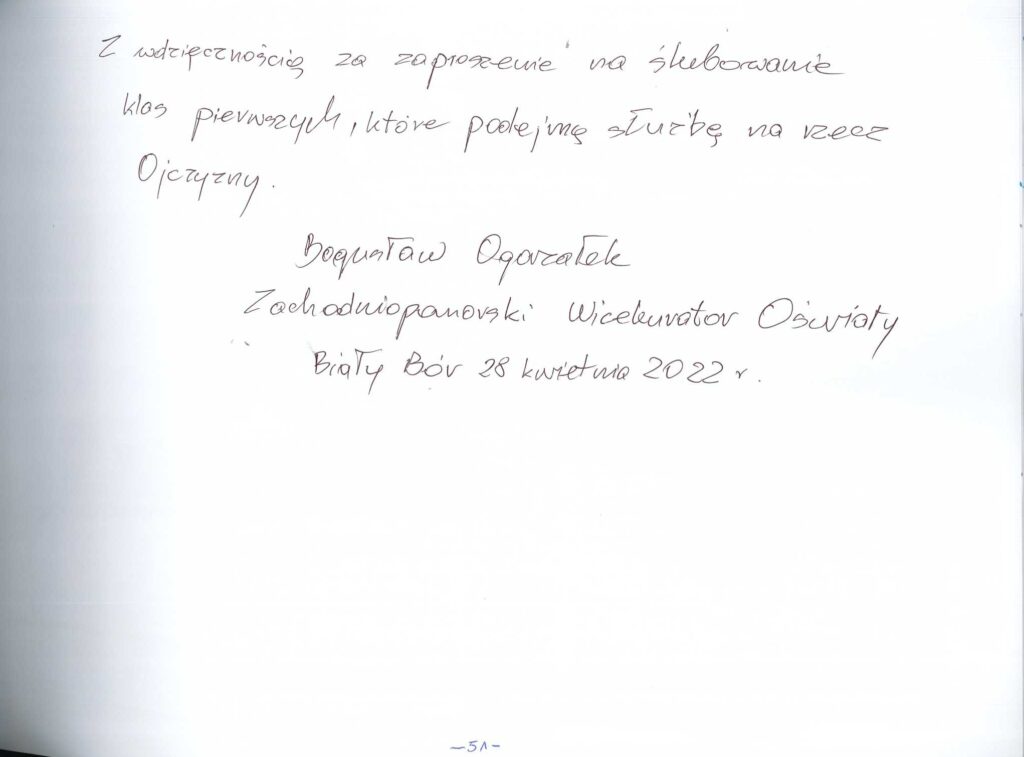 Z wdzięcznością za zaproszenie na ślubowanie
klas pierwszych, które podejmą służbę na rzecz
Ojczyzny.
Bogusław Ogorzałek
Zachodniopomorski Wicekurator Oświaty
Biały Bór 28 kwietnia 2022 r.
-51-